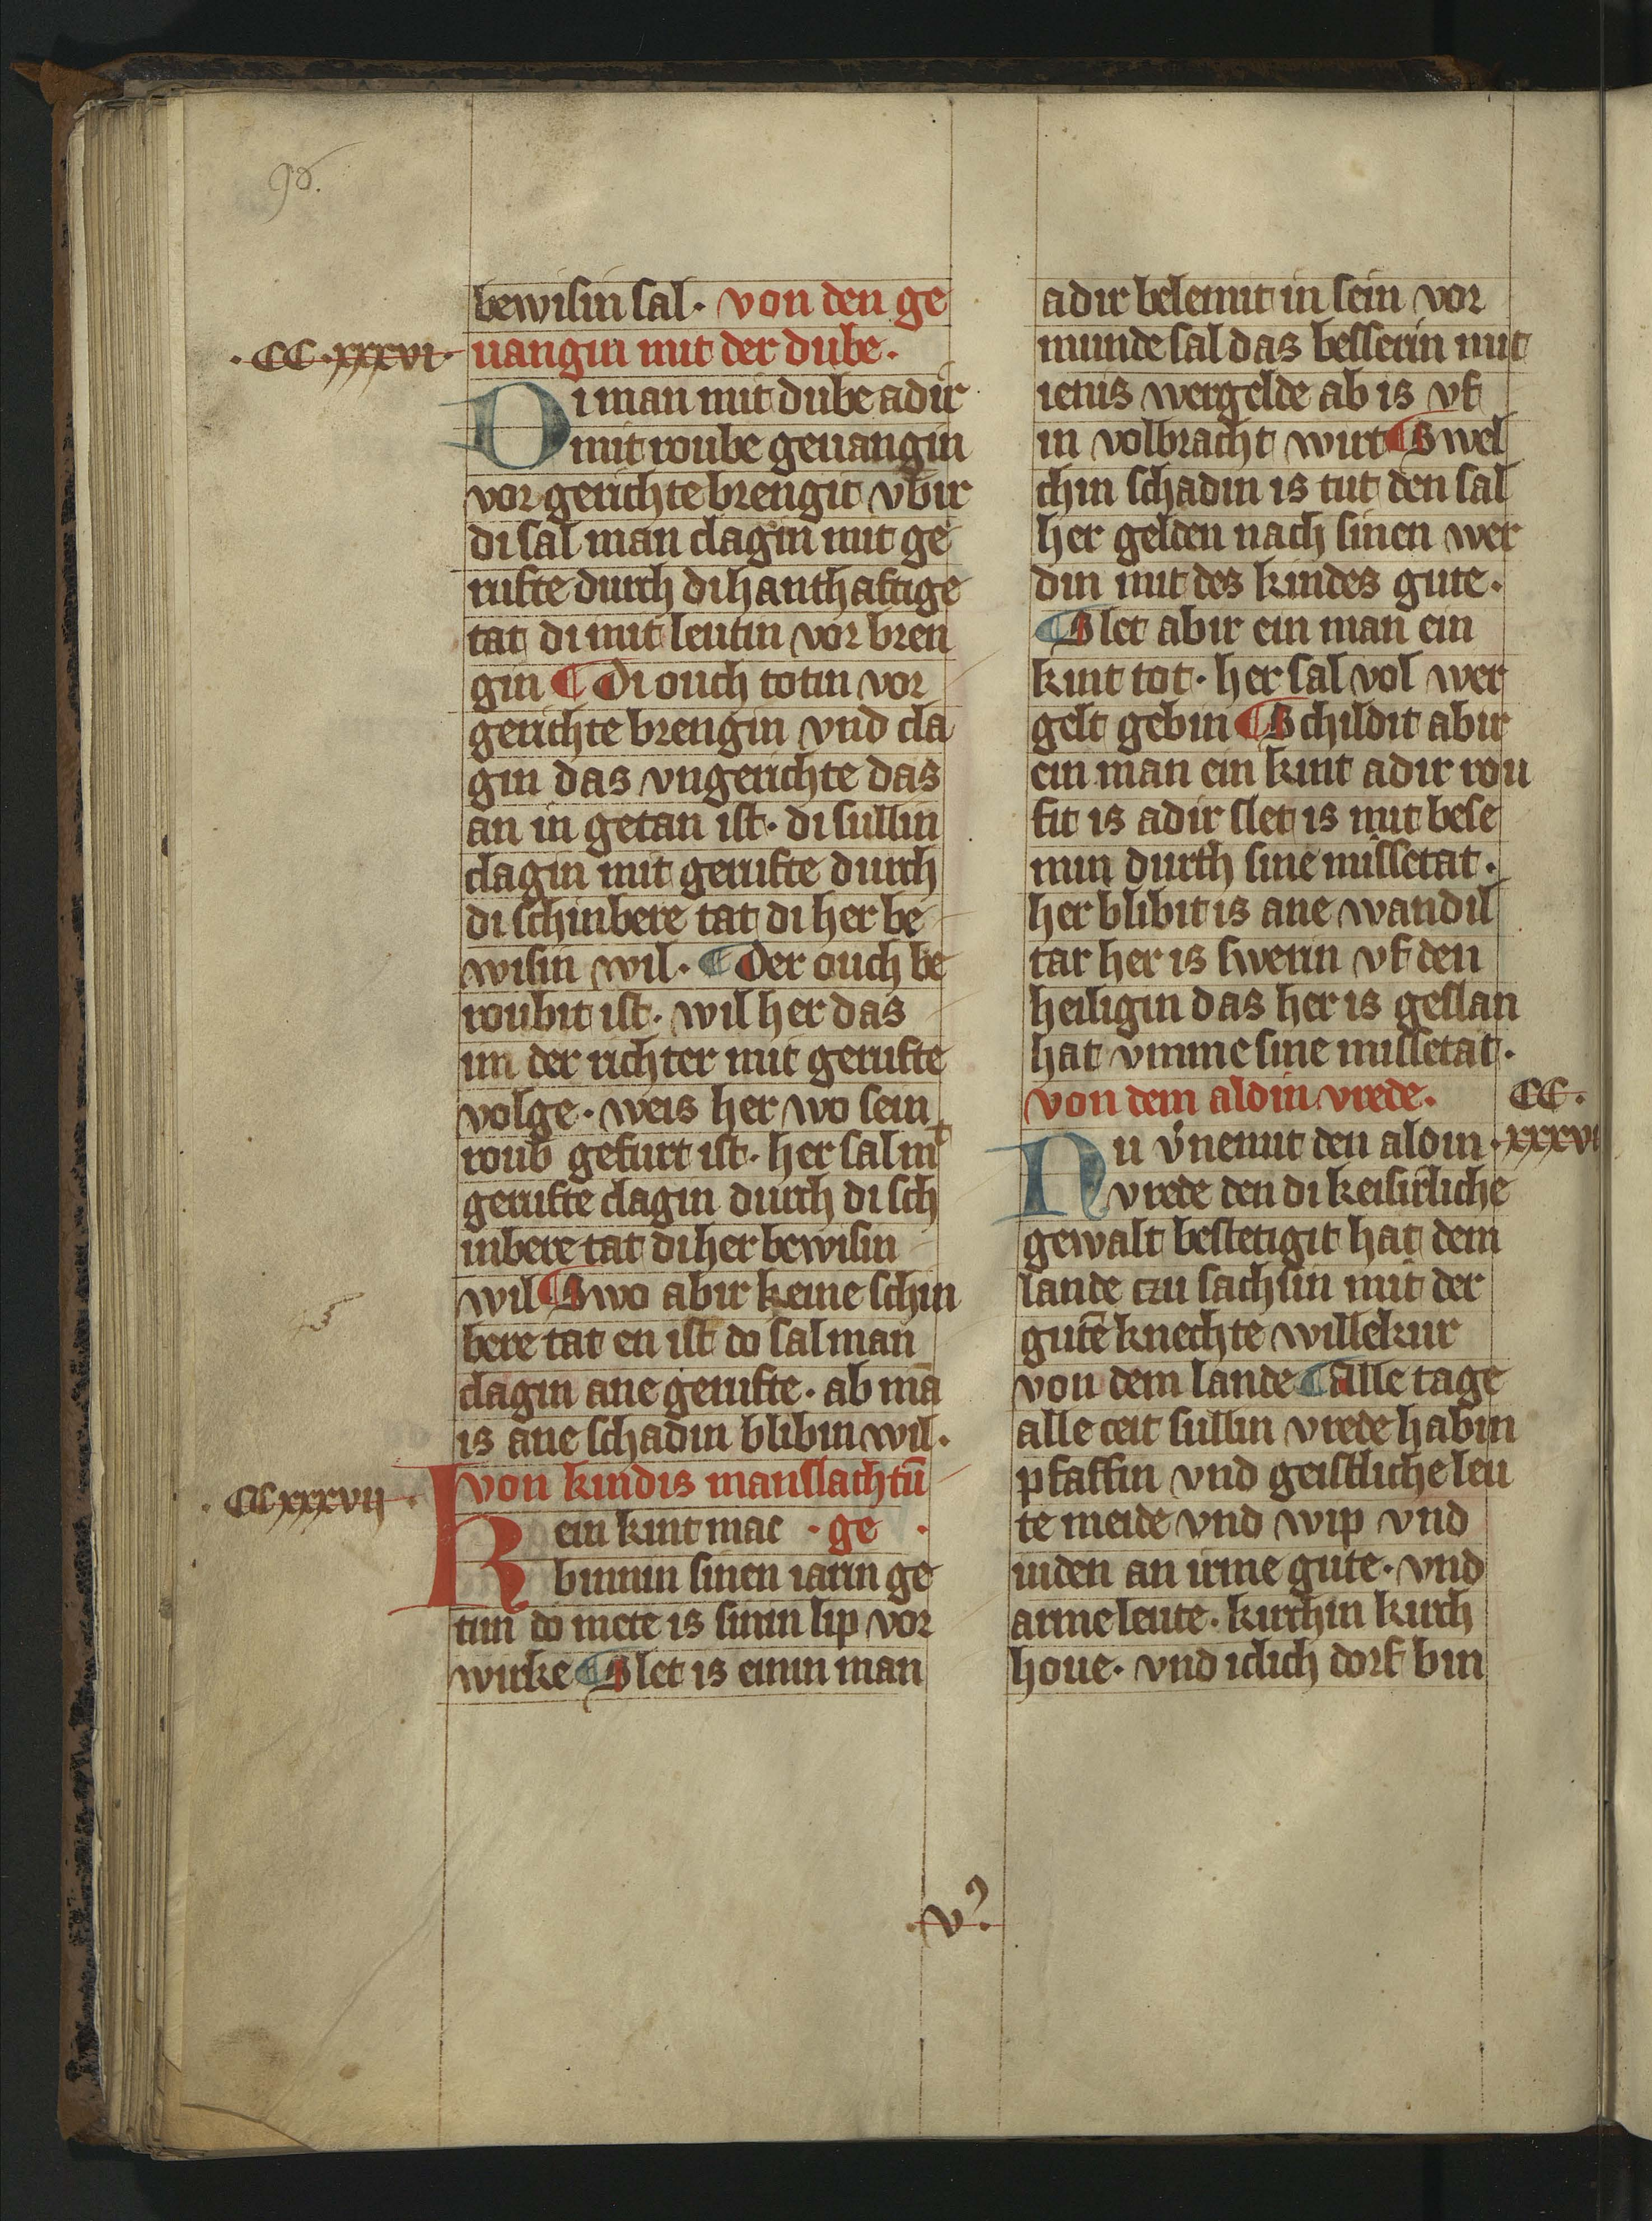 96.
bewisin sal. von den ge
.CC.xxxvi. uangin mit der dube.
Di man mit dube adir
mit roube geuangin
vor gerichte brengit vbir
di sal man clagin mit ge
rufte durch di hanthaftige
tat di mit leutin vor bren
gin ¶ Di ouch totin vor
gerichte brengin vnd cla
gin das vngerichte das
an in getan ist. di sullin
clagin mit gerufte durch
di schinbere tat di her be
wisin wil. ¶ Der ouch be
roubit ist. wil her das
im der richter mit gerufte
volge. weis her wo sein
roub gefurt ist. her sal mit
gerufte clagin durch di sch
inbere tat di her bewisin
wil ¶ Swo abir keine schin
bere tat en ist do sal man
clagin ane gerufte. ab mā
is ane schadin blibin wil.
von kindis manslachtū
.CCxxxvii. Kein kint mac . ge .
binnin sinen iarin ge
tun do mete is sinin lip vor
wirke ¶ Slet is einin man
adir belemit in sein vor
munde sal das besserin mit
ienis wergelde ab is vf
in volbracht wirt ¶ Swel
chin schadin is tut den sal
her gelden nach sinen wer
din mit des kindes gute.
¶ Slet abir ein man ein
kint tot. her sal vol wer
gelt gebin ¶ Schildit abir
ein man ein kint adir rou
fit is adir slet is mit bese
min durch sine missetat.
her blibit is ane wandil
tar her is swerin vf den
heiligin das her is geslan
hat vmme sine missetat.
von dem aldin vrede. CC.
Nu v̓nemit den aldin .xxxvi
vrede den di keisirliche
gewalt bestetigit hat dem
lande czu sachsin mit der
gutē knechte willekur
von dem lande ¶ Alle tage
alle ceit sullin vrede habin
pfaffin vnd geistliche leu
te meide vnd wip vnd
iuden an irme gute. vnd
arme leute. kirchin kirch
houe. vnd iclich dorf bin
.v᾿.